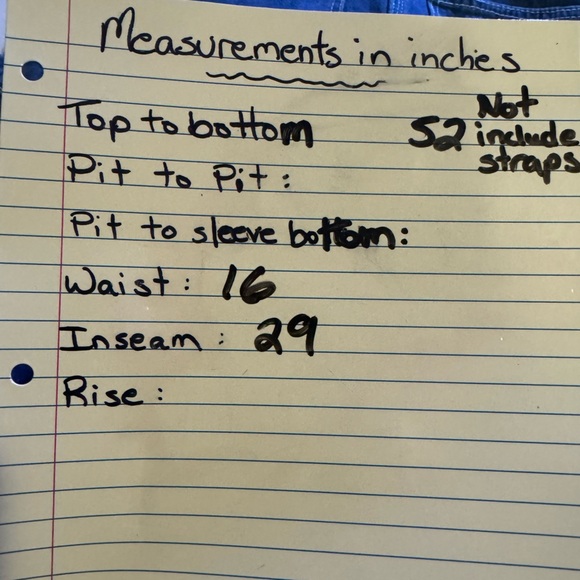 Measurements in inches
Top to bottom 52 Not include straps
Pit to Pit:
Pit to sleeve bottom:
Waist: 16
Inseam: 29
Rise: